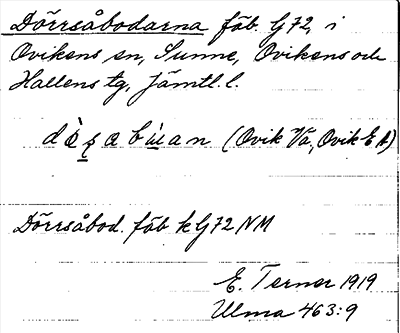 Dörrsåbodarna fäb. G72, i
Ovikens sn, Sunne, Ovikens och
Hallens tg, Jämtl. l.
(Ovik Va, Ovik E A)
Dörrsåbod. fäb kG72 NM
E. Terner 1919
Ulma 463:9